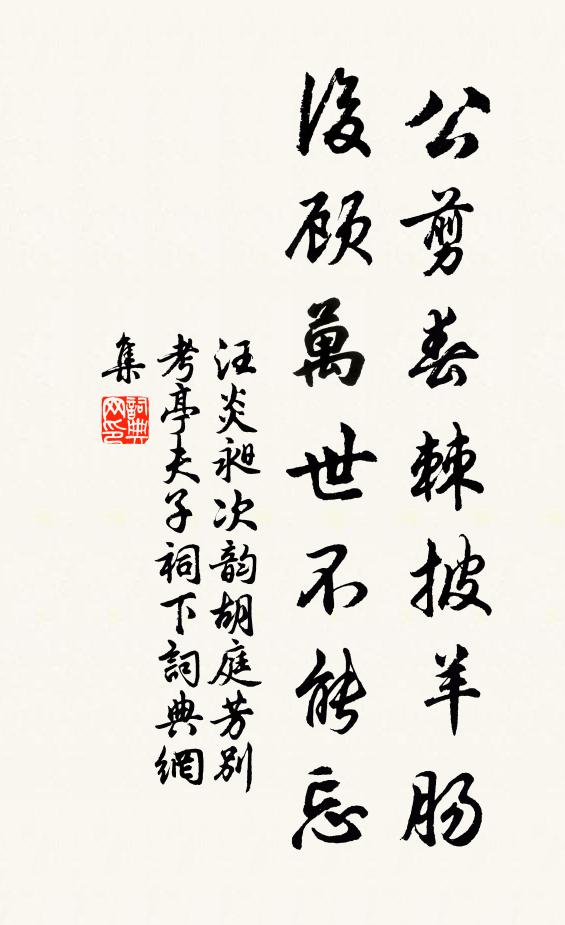 公剪春棘披羊肠
後顾萬世不能忘
汪炎昶次韵胡庭芳别
考亭夫子祠下詞典網
集
詞典
网印